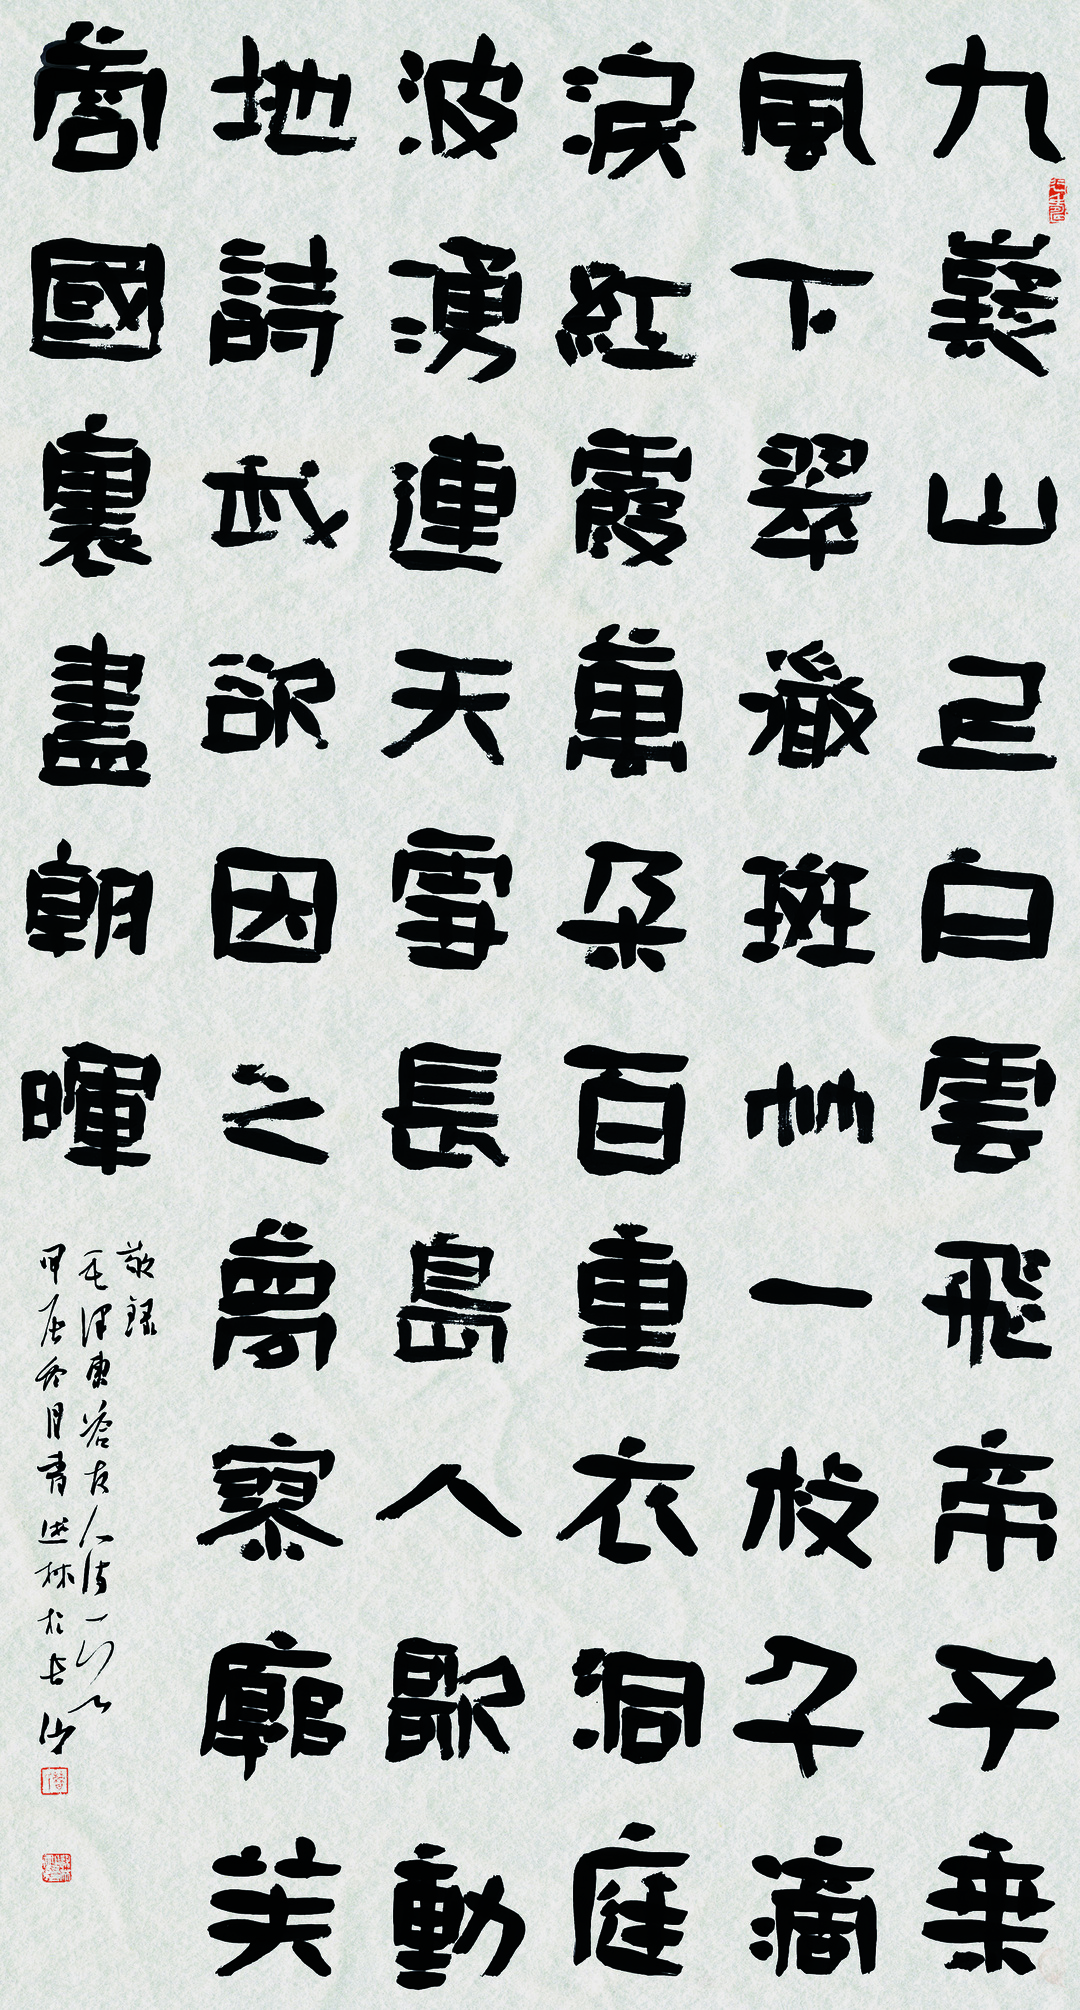 九嶷山上白雲飛帝子乘
風下翠微斑竹一枝千滴
淚紅霞萬朵百重衣洞庭
波湧連天雪長島人歌動
地詩我欲因之夢寥廓芙
蓉國裏盡朝暉
敬録
毛澤東答友人詩一首
甲辰冬月林於長沙